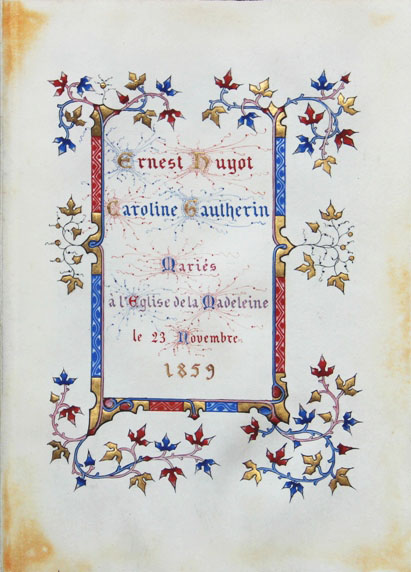 Ernest Huyot
Caroline Gautherin
Mariés
à l'Eglise de la Madeleine
le 23 Novembre
1859